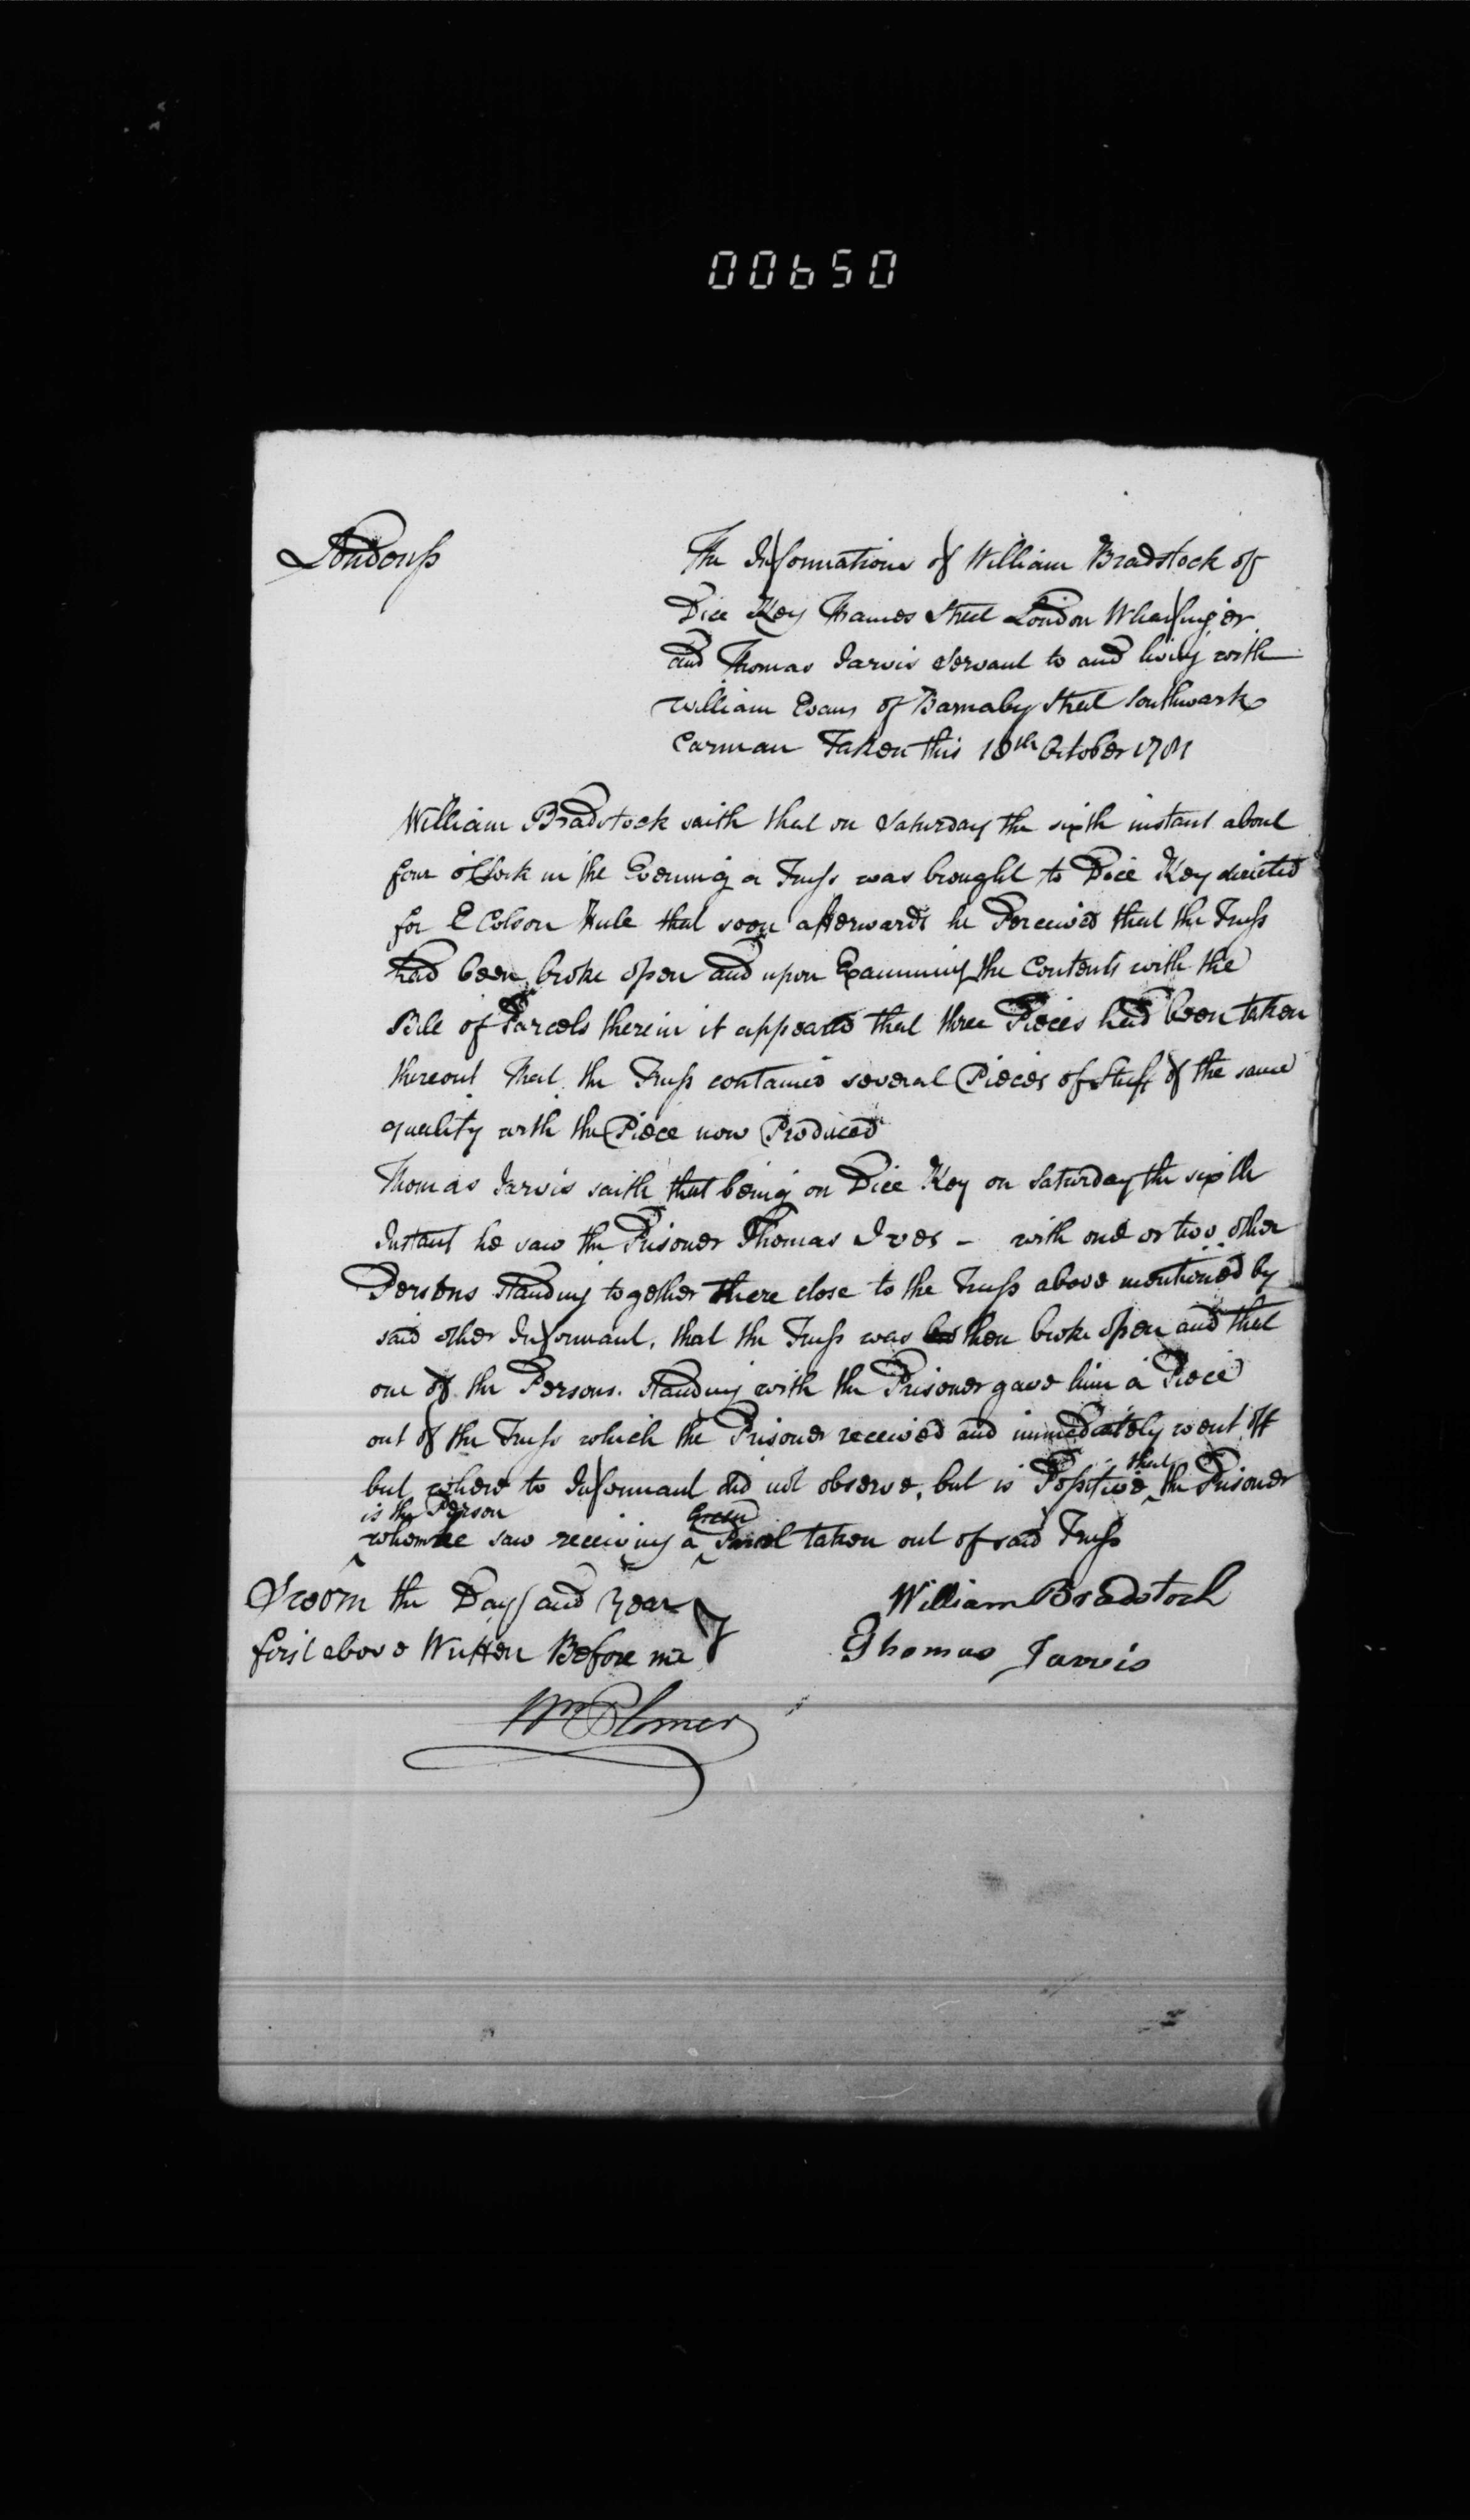 00650
London ss
The Informations of William Bradstock of
Dice Key Thames Street London Wharfinger
and Thomas Jarvis Servant to and living with
William Evans of Barnaby Street Southwark
Carman Taken this 10th October 1781
William Bradstock saith that on Saturday the sixth instant about
four o'Clock in the Evening a Truss was brought to Dice Key directed
for E Colson Hule that soon afterwards he Perceived that the Truss
had been broke open and upon Examining the Contents with the
Bile of Parcels therein it appeared that three Pieces had been taken
thereout That the Truss contained several Pieces of Stuff of the same
quality with the Piece now Produced
Thomas Jarvis saith that being on Dice Key on Saturday the sixth
Instant he saw the Prisoner Thomas Ives - with one or two other
Persons standing together there close to the Truss above mentioned by
said other Informant, that the Truss was then broke open and that
one of the Persons standing with the Prisoner gave him a Piece
out of the Truss which the Prisoner received and immediately went off
but where to Informant did not observe, but is Positive that the Prisoner
is the Person
whom he saw receiving a Green Parcel taken out of said Truss
Sworn the Day and Year
first above Written Before me
William Bradstock
Thomas Jarvis
Wm Plomer